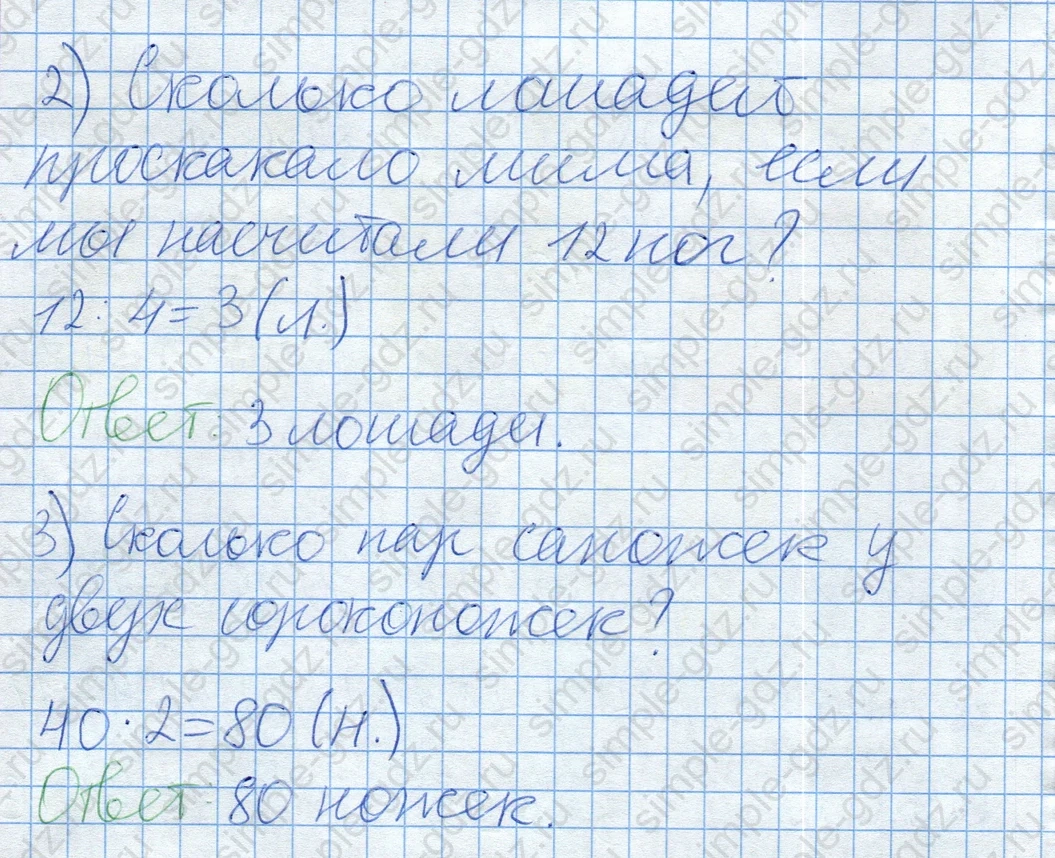 2) Сколько лошадей
проскакало мимо, если
мы насчитали 12 ног?
12 : 4 = 3 (л.)
Ответ: 3 лошади.
3) Сколько пар сапожек у
двух сороконожек?
40 · 2 = 80 (н.)
Ответ: 80 ножек.
simple-gdz.ru